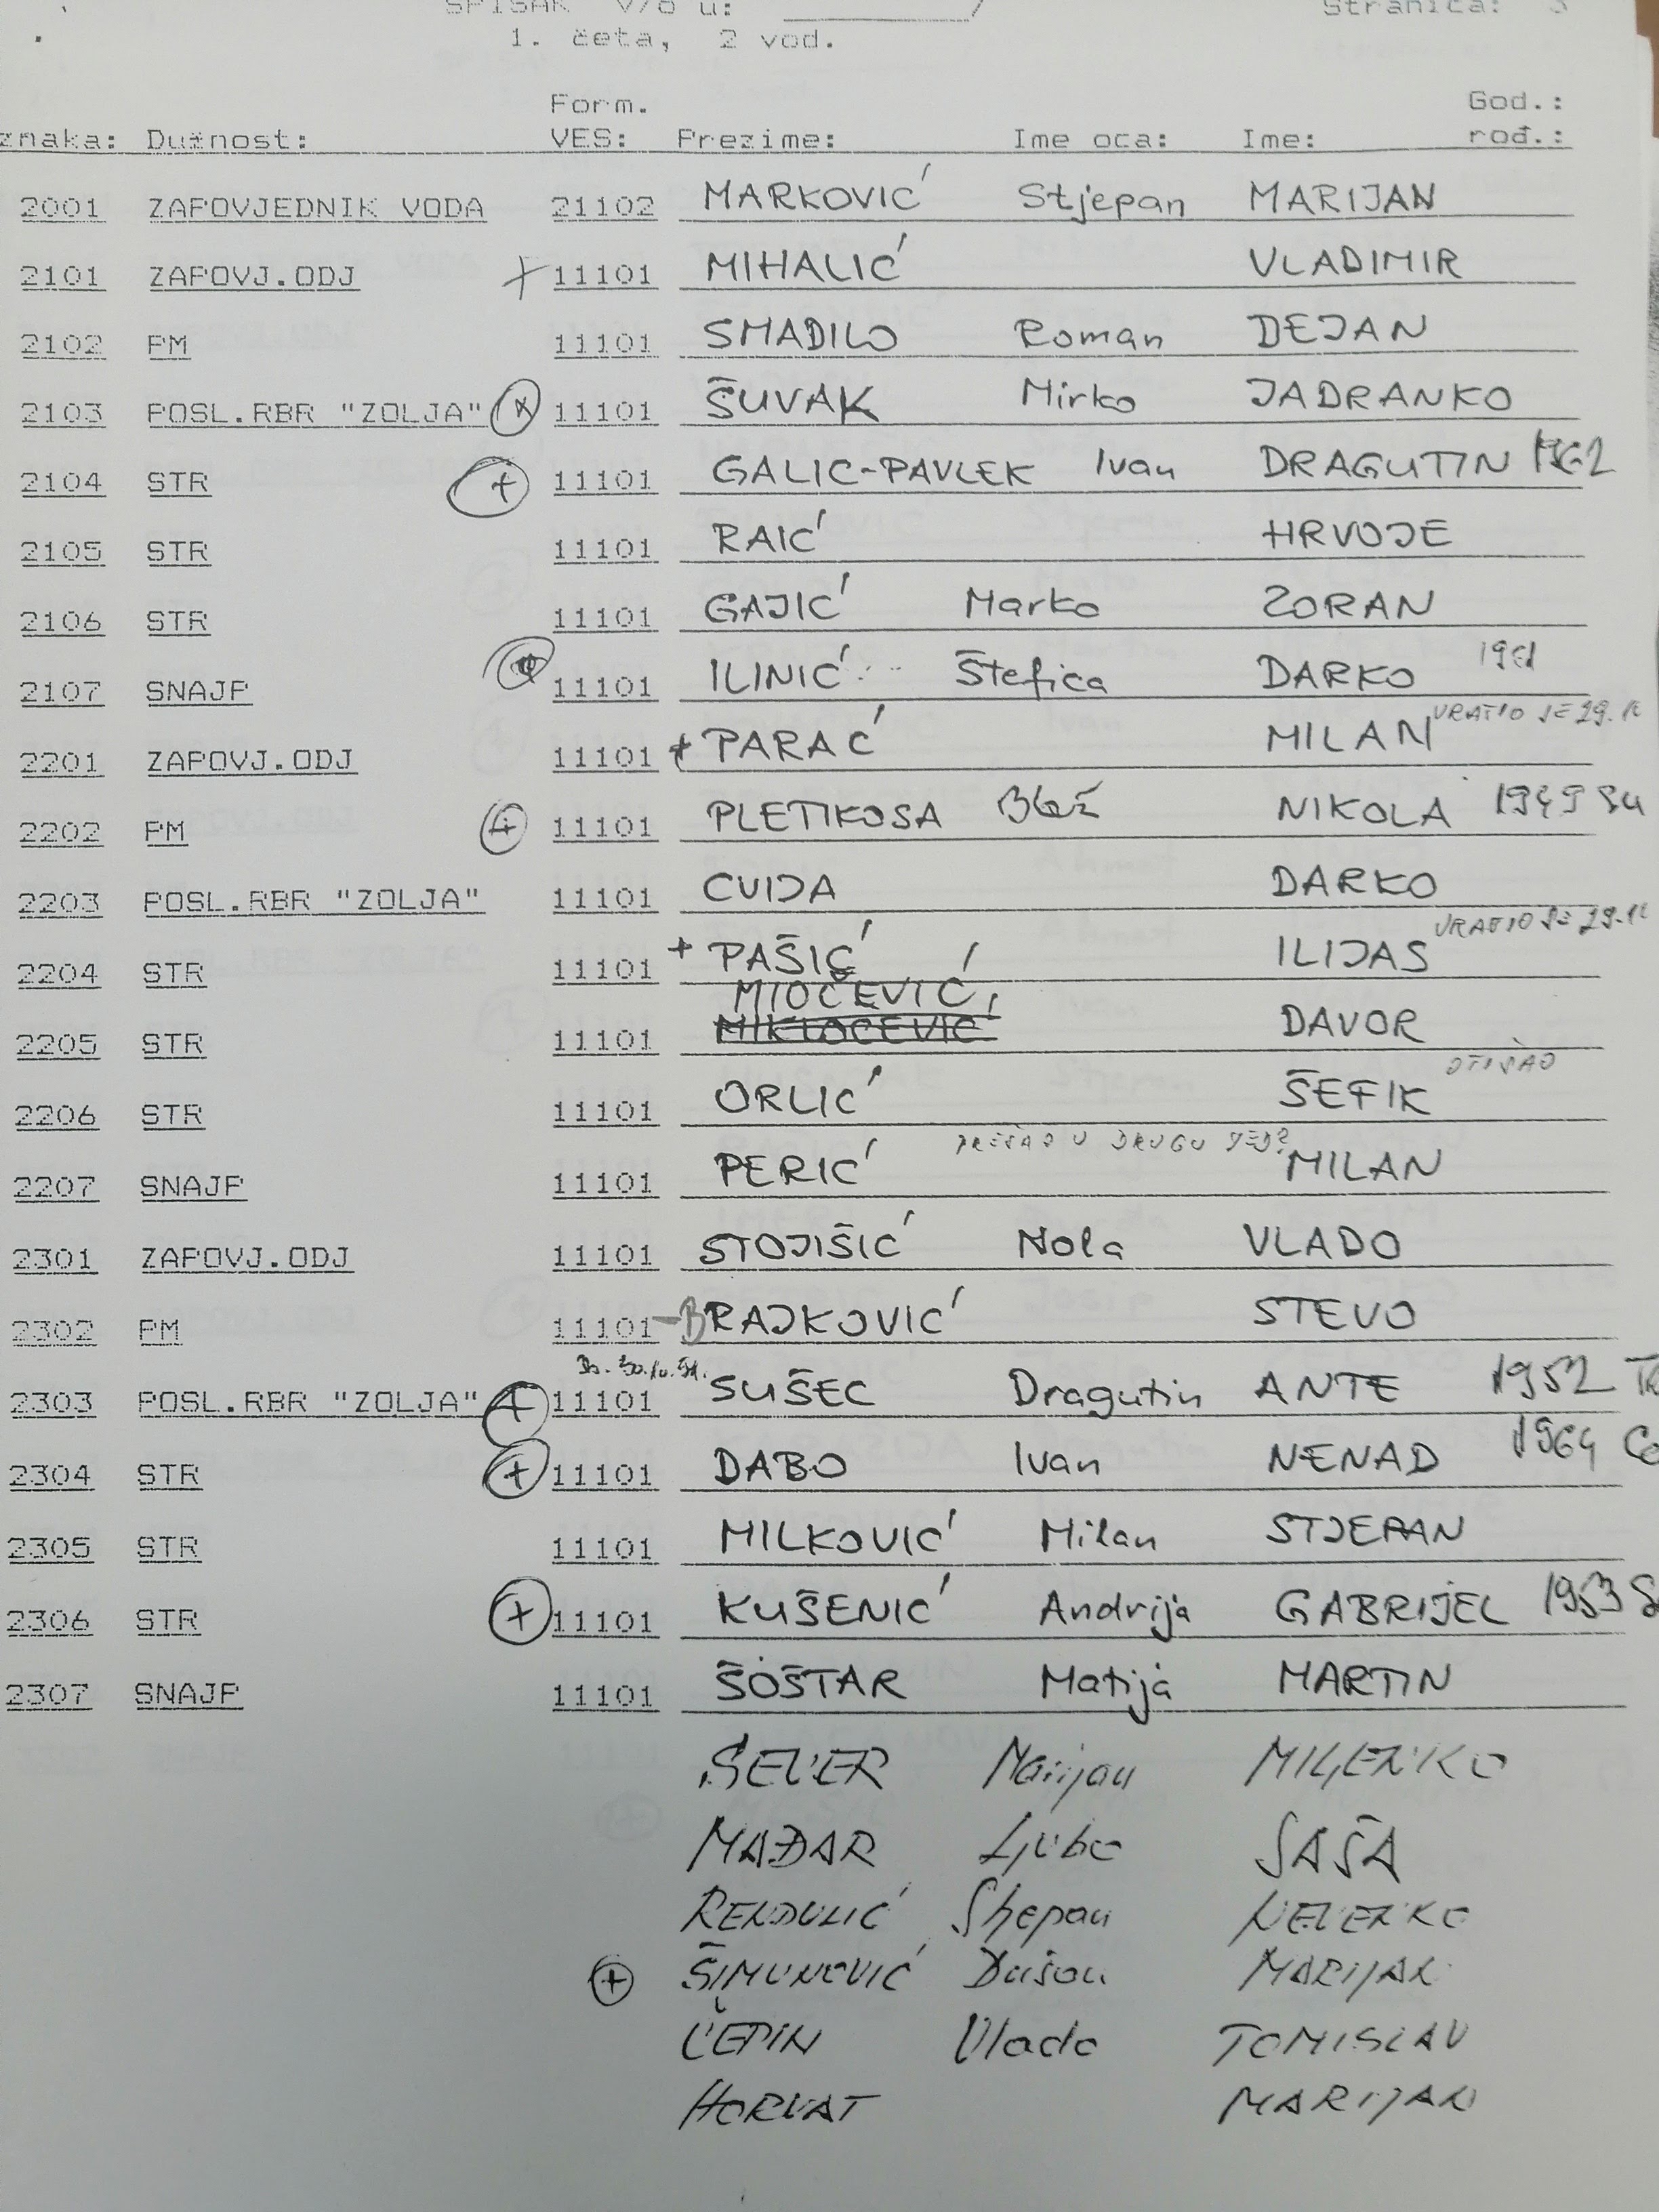 SPISAK v/o u: __________/ Stranica: 3
1. četa, 2 vod.
Form. God.:
znaka: Dužnost: VES: Prezime: Ime oca: Ime: rođ.:
2001 ZAPOVJEDNIK VODA 21102 MARKOVIĆ Stjepan MARIJAN
2101 ZAPOVJ.ODJ + 11101 MIHALIĆ VLADIMIR
2102 PM 11101 SMADILO Roman DEJAN
2103 POSL.RBR "ZOLJA" 11101 ŠUVAK Mirko JADRANKO
2104 STR + 11101 GALIC-PAVLEK Ivan DRAGUTIN 1962
2105 STR 11101 RAIĆ HRVOJE
2106 STR 11101 GAJIĆ Marko ZORAN
2107 SNAJP 11101 ILINIĆ Štefica DARKO
VRATIO SE 29.10
2201 ZAPOVJ.ODJ 11101 + PARAĆ MILAN
2202 PM + 11101 PLETIKOSA Blaž NIKOLA 1949
2203 POSL.RBR "ZOLJA" 11101 CVIJA DARKO
VRATIO SE 29.10
2204 STR 11101 + PAŠIĆ ILIJAS
MIOČEVIĆ
2205 STR 11101 MIKLOCEVIĆ DAVOR
OTIŠAO
2206 STR 11101 ORLIĆ ŠEFIK
PREŠAO U DRUGU
2207 SNAJP 11101 PERIĆ MILAN
2301 ZAPOVJ.ODJ 11101 STOJIŠIĆ Nola VLADO
2302 PM 11101 - BRAJKOVIĆ STEVO
2303 POSL.RBR "ZOLJA" + 11101 SUŠEC Dragutin ANTE 1952
2304 STR + 11101 DABO Ivan NENAD 1964
2305 STR 11101 MILKOVIĆ Milan STJEPAN
2306 STR + 11101 KUŠENIĆ Andrija GABRIJEL 1953
2307 SNAJP 11101 ŠOŠTAR Matija MARTIN
SEVER Marijan MILJENKO
MAĐAR Ljubo SAŠA
RENDULIĆ Stjepan NEVENKO
+ ŠIMUNOVIĆ Dušan MARIJAN
ČEPIN Vlado TOMISLAV
HORVAT MARIJAN